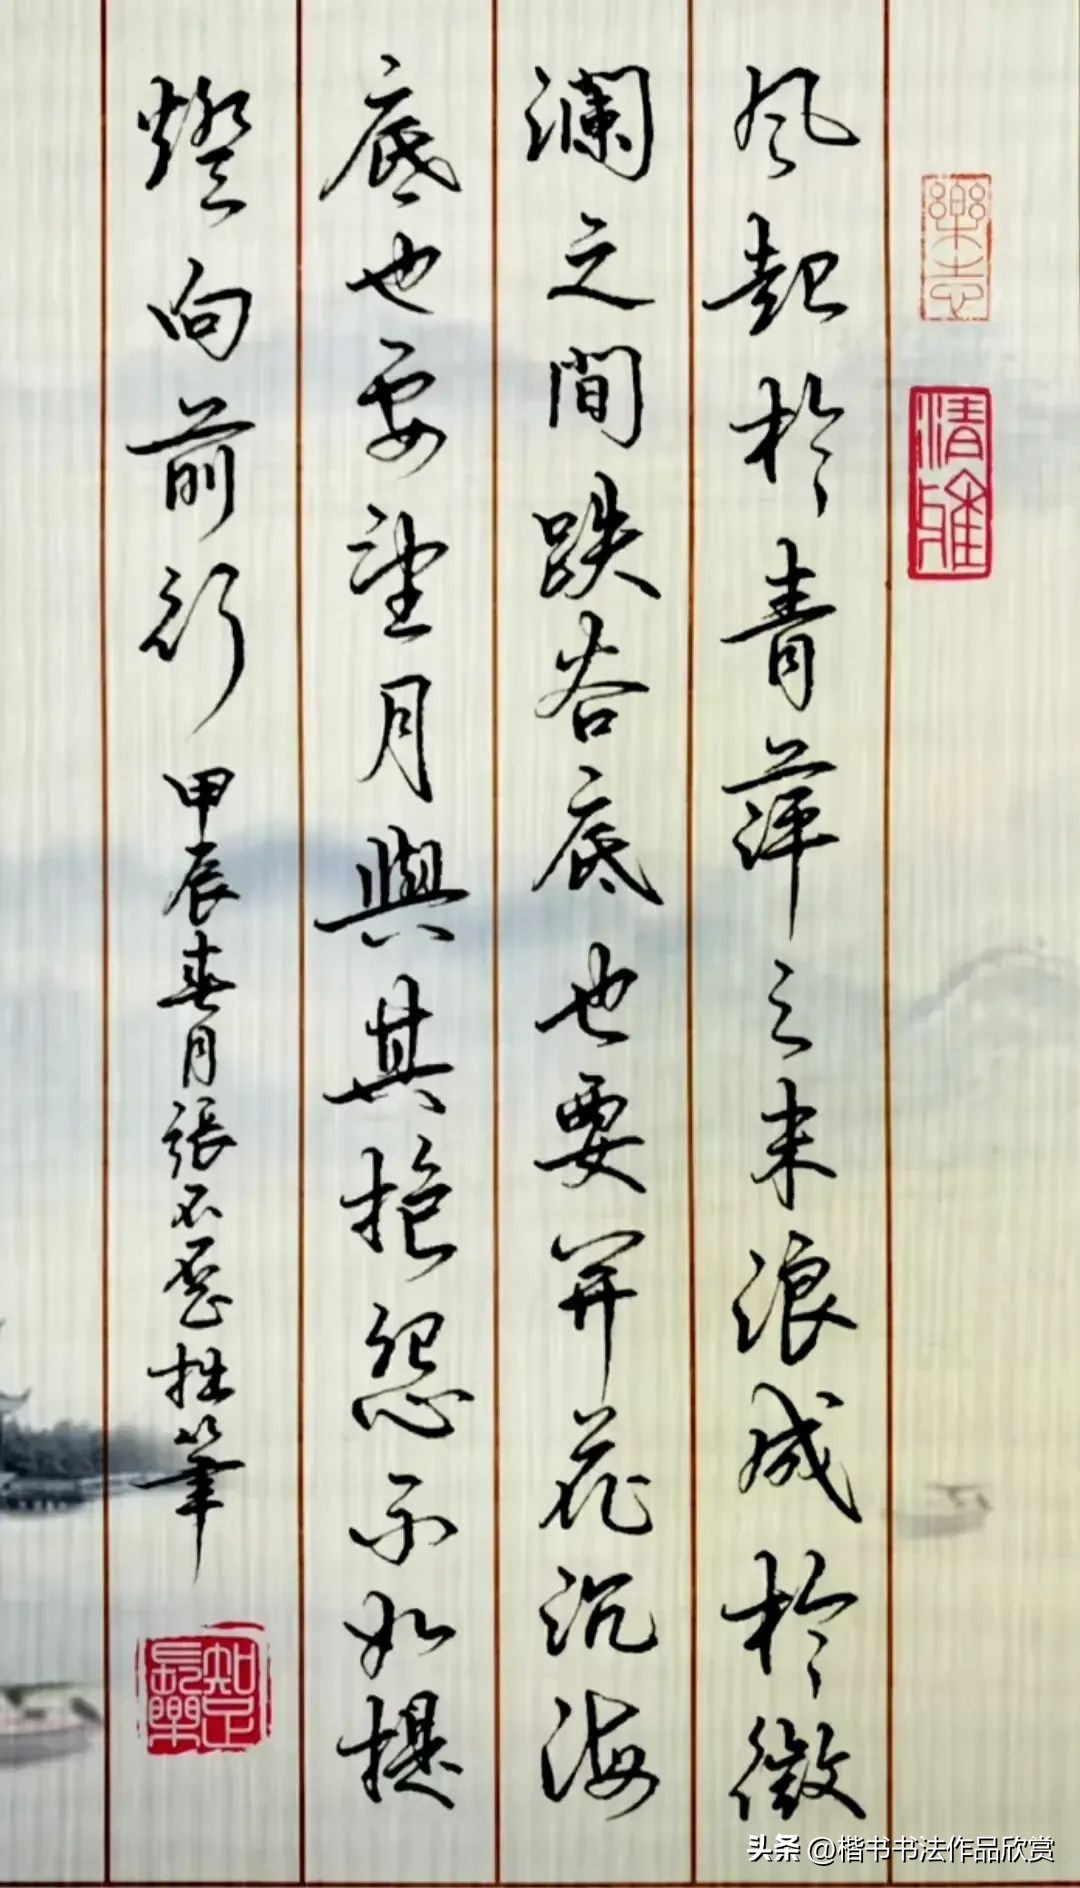 樂志
清雅
风起於青萍之末浪成於微
瀾之間跌谷底也要开花沉海
底也要望月與其抱怨不如提
燈向前行
甲辰春月張拙筆
知足長樂
头条 @楷书书法作品欣赏